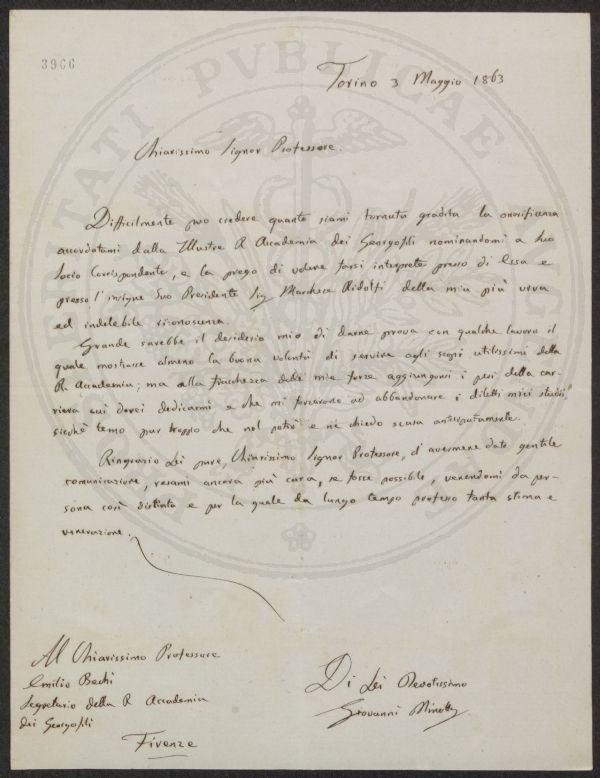 3966
Torino 3 Maggio 1863
Chiarissimo Signor Professore.
Difficilmente può credere quanto siami tornata gradita la onorificenza
accordatami dalla Illustre R Accademia dei Georgofili nominandomi a Suo
Socio Corrispondente, e la prego di volere farsi interprete presso di Essa e
presso l'insigne Suo Presidente Sig Marchese Ridolfi della mia più viva
ed indelebile riconoscenza.
Grande sarebbe il desiderio mio di darne prova con qualche lavoro il
quale mostrasse almeno la buona volontà di servire agli scopi utilissimi della
R. Accademia; ma alla fiacchezza delle mie forze aggiungonsi i pesi della car-
riera cui dovei dedicarmi e che mi forzarono ad abbandonare i diletti miei studii,
sicchè temo pur troppo che nol potrò e ne chiedo scusa anticipatamente.
Ringrazio Lei pure, Chiarissimo Signor Professore, d'avermene dato gentile
comunicazione, resami ancora più cara, se fosse possibile, venendomi da per-
sona così distinta e per la quale da lungo tempo professo tanta stima e
venerazione.
Al Chiarissimo Professore
Emilio Bechi
Segretario della R Accademia
dei Georgofili
Firenze
Di Lei Devotissimo
Giovanni Minotto
PVBLICAE